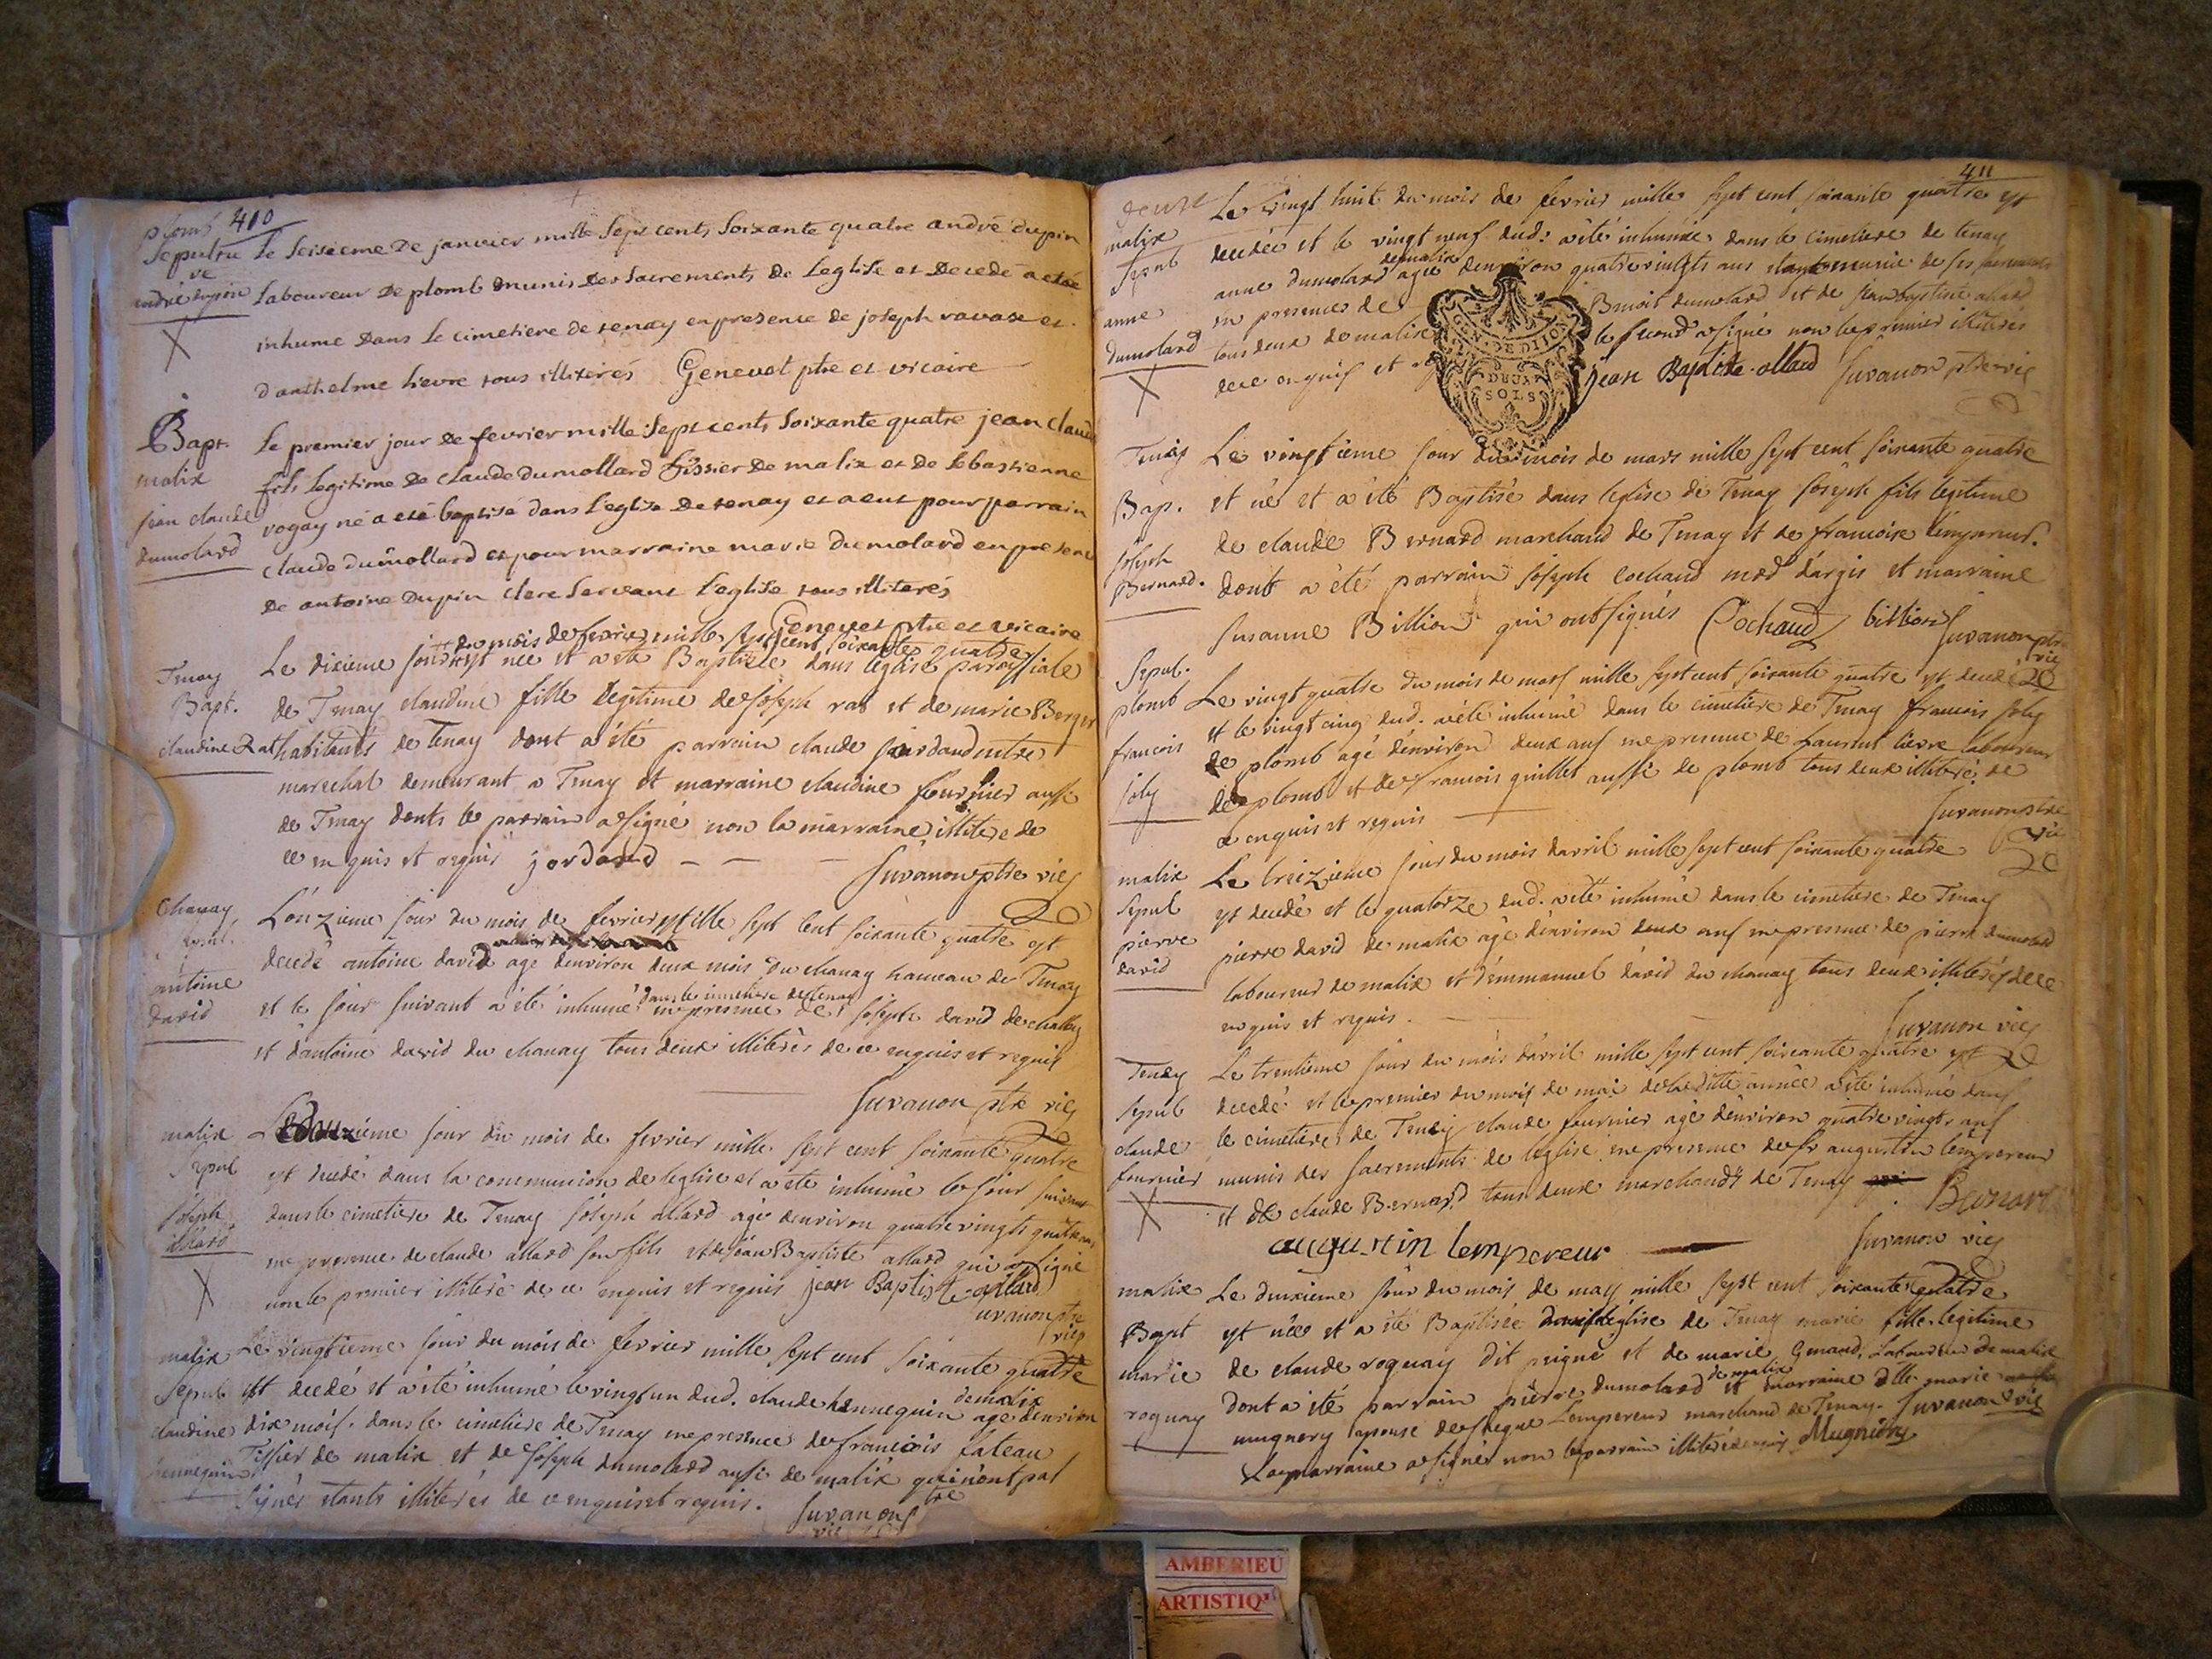 plomb 410
Sepultue
ve
andré dupin
Le seisieme de janvier mille sept cents soixante quatre andré dupin
laboureur de plomb munis des sacrements de l'eglise et decedé a eté
inhume dans le cimetiere de tenay en presence de joseph ravase et
d'anthelme lievre tous illiterés Genevet ptre et vicaire
Bapt.
malix
jean claude
dumolard
le premier jour de fevrier mille sept cents soixante quatre jean claude
fils legitime de claude dumollard tissier de malix et de sebastienne
vogay né a eté baptisé dans l'eglise de tenay et a eut pour parrain
claude dumollard et pour marraine marie dumolard en presence
de antoine dupin clerc servant l'eglise tous illiterés
Genevet ptre et vicaire
Tenay
Bapt.
claudine Rat
du mois de fevrier mille sept cent soixante quatre
Le dixieme jour est née et a eté Baptisée dans l'eglise paroissiale
de Tenay claudine fille legitime de joseph rat et de marie Berger
habitants de tenay dont a été parrain claude jourdand mtre
marechal demeurant a Tenay et marraine claudine fournier aussi
de Tenay donts le parrain a signé non la marraine illitere de
ce enquis et requis jordand
Juvanon ptre vic
chanay
sepul.
antoine
david
L'onzieme jour du mois de fevrier mille sept cent soixante quatre est
decedé antoine david agé d'environ deux mois du chanay hameau de Tenay
dans le cimetiere de tenay
et le jour suivant a été inhumé en presence de joseph david de challey
et d'antoine david du chanay tous deux illiterés de ce enquis et requis
Juvanon ptre vic
malix
Sepul
joseph
allard
Le douzieme jour du mois de fevrier mille sept cent soixante quatre
est decedé dans la communion de l'eglise et a eté inhumé le jour suivant
dans le cimetiere de Tenay joseph allard agé d'environ quatre vingts quatre ans
en presence de claude allard son fils et de jean Baptiste allard qui a signé
non le premier illiteré de ce enquis et requis jean Baptiste allard
Juvanon ptre
vic
malix
Sepul
claudine
hennequin
Le vingtieme jour du mois de fevrier mille sept cent soixante quatre
est decedé et a été inhumé le vingt un dud. claude hennequin de malix agé d'environ
dix mois. dans le cimetiere de Tenay en presence de francois fateau
Tissier de malix et de joseph dumolard aussi de malix qui n'ont pas
signés etants illiterés de ce enquis et requis. Juvanon ptre
vic
411
malix
Sepul
anne
dumolard
Le vingt huit du mois de fevrier mille sept cent soixante quatre est
decedée et le vingt neuf dud: a été inhumée dans le cimetiere de tenay
de malix
anne dumolard agée d'environ quatre vingts ans etant munie de ses sacrements
en presence de Benoit dumolard et de jean baptiste allard
tous deux de malix le second a signé non le premier illiterés
de ce enquis et req jean Baptiste allard Juvanon ptre vic
GEN. DE DIJON
DEUX
SOLS
Tenay
Bap.
joseph
Bernard.
Le vingtieme jour du mois de mars mille sept cent soixante quatre
est né et a été Baptisé dans l'eglise de Tenay joseph fils legitime
de claude Bernard marchand de Tenay et de francoise l'empereur.
dont a été parrain joseph cochaud md d'argis et marraine
susanne Billion qui ont signés Cochaud billion Juvanon ptre
vic
Sepul.
plomb
francois
joly
Le vingt quatre du mois de mars mille sept cent soixante quatre est decedé
et le vingt cinq dud. a été inhumé dans le cimetiere de Tenay francois joly
de plomb agé d'environ deux ans en presence de Laurent lievre laboureur
de plomb et de francois guillet aussi de plomb tous deux illiteré de
ce enquis et requis
Juvanon ptre
vic
malix
Sepul
pierre
david
Le treizieme jour du mois d'avril mille sept cent soixante quatre
est decedé et le quatorze dud. a été inhumé dans le cimetiere de Tenay
pierre david de malix agé d'environ deux ans en presence de pierre dumolard
laboureur de malix et d'emmanuel david du chanay tous deux illiterés de ce
enquis et requis.
Juvanon vic
Tenay
Sepul
claude
fournier
Le trentieme jour du mois d'avril mille sept cent soixante quatre est
decedé et le premier du mois de mai de la ditte année a été inhumé dans
le cimetiere de Tenay claude fournier agé d'environ quatre vingts ans
munis des sacrements de l'eglise en presence de sr augustin l'empereur
et de claude Bernard tous deux marchands de Tenay
Bernard
augustin lempereur
Juvanon vic
malix
Bapt
marie
roguay
Le deuxieme jour du mois de may mille sept cent soixante quatre
est née et a été Baptisée dans l'eglise de Tenay marie fille legitime
de claude roguay dit peigne et de marie Genand, Laboureur de malix
dont a été parrain pierre dumolard de malix et marraine dlle marie
mugnery epouse de l'empereur marchand de Tenay. Juvanon vic
La marraine a signés non le parrain illiteré Mugniery
AMBERIEU
ARTISTIQ